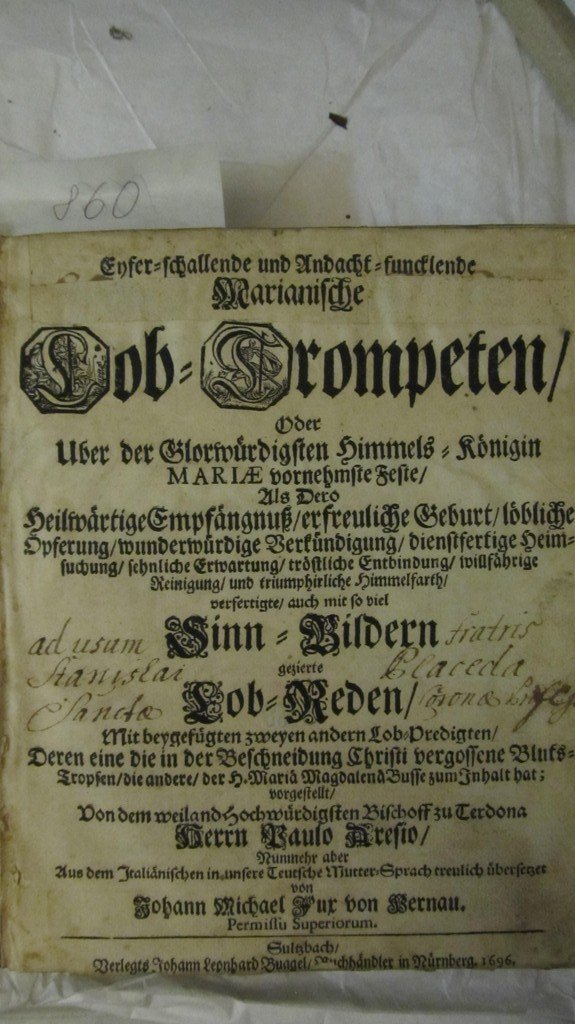 860
Eyfer-schallende und Andacht-funcklende
Marianische
Lob-Trompeten/
Oder
Uber der Glorwürdigsten Himmels-Königin
MARIÆ vornehmste Feste/
Als Dero
Heilwärtige Empfängnuß/erfreuliche Geburt/löbliche
Opferung/wunderwürdige Verkündigung/dienstfertige Heim-
suchung/sehnliche Erwartung/tröstliche Entbindung/willfährige
Reinigung/und triumphirliche Himmelfarth/
verfertigte/auch mit so viel
Sinn-Bildern
ad usum fratris
Stanislai Placeda
gezierte
Sanctæ Coronæ
Lob-Reden/
Mit beygefügten zweyen andern Lob-Predigten/
Deren eine die in der Beschneidung Christi vergossene Bluts-
Tropfen/die andere/der H. Mariä Magdalenä Busse zum Inhalt hat;
vorgestellt/
Von dem weiland Hochwürdigsten Bischoff zu Terdona
Herrn Paulo Aresio/
Nunmehr aber
Aus dem Italiänischen in unsere Teutsche Mutter-Sprach treulich übersetzet
von
Johann Michael Fux von Bernau.
Permissu Superiorum.
Sultzbach/
Verlegts Johann Leonhard Buggel/Buchhändler in Nürnberg. 1696.